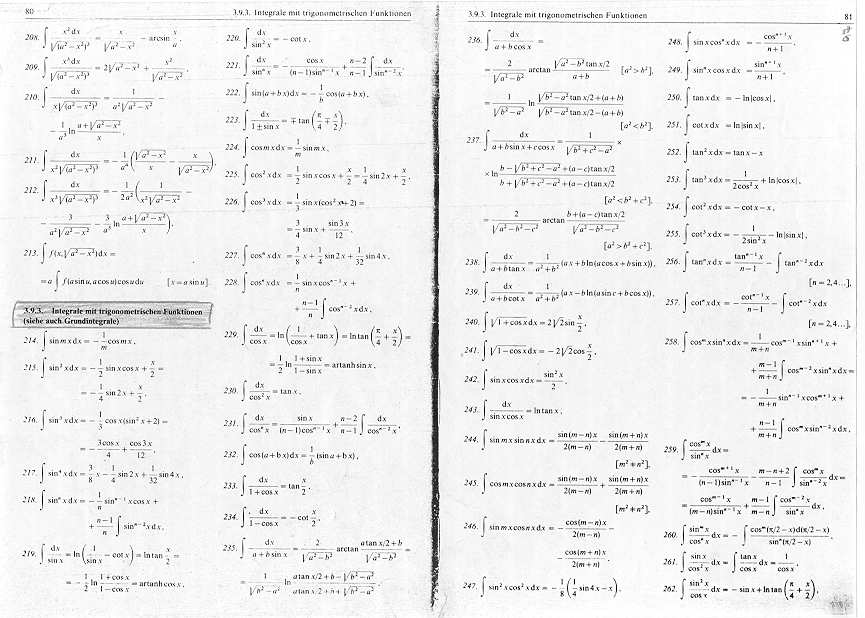 80
3.9.3. Integrale mit trigonometrischen Funktionen
208. ∫ x² dx / √(a² − x²)³ = x / √(a² − x²) − arcsin x/a.
209. ∫ x³ dx / √(a² − x²)³ = 2√(a² − x²) + x² / √(a² − x²).
210. ∫ dx / x√(a² − x²)³ = 1 / a²√(a² − x²) −
− 1/a³ ln (a + √(a² − x²)) / x.
211. ∫ dx / x²√(a² − x²)³ = − 1/a⁴ (√(a² − x²) / x − x / √(a² − x²)).
212. ∫ dx / x³√(a² − x²)³ = − 1/2a² (1 / x²√(a² − x²) −
− 3 / a²√(a² − x²) + 3/a³ ln (a + √(a² − x²)) / x).
213. ∫ f(x, √(a² − x²)) dx =
= a ∫ f(a sin u, a cos u) cos u du [x = a sin u].
3.9.3. Integrale mit trigonometrischen Funktionen
(siehe auch Grundintegrale)
214. ∫ sin mx dx = − 1/m cos mx.
215. ∫ sin² x dx = − 1/2 sin x cos x + x/2 =
= − 1/4 sin 2x + x/2.
216. ∫ sin³ x dx = − 1/3 cos x (sin² x + 2) =
= − 3 cos x / 4 + cos 3x / 12.
217. ∫ sin⁴ x dx = 3/8 x − 1/4 sin 2x + 1/32 sin 4x.
218. ∫ sinⁿ x dx = − 1/n sinⁿ⁻¹ x cos x +
+ (n − 1)/n ∫ sinⁿ⁻² x dx.
219. ∫ dx / sin x = ln (1 / sin x − cot x) = ln tan x/2 =
= − 1/2 ln (1 + cos x) / (1 − cos x) = artanh cos x.
220. ∫ dx / sin² x = − cot x.
221. ∫ dx / sinⁿ x = − cos x / (n − 1) sinⁿ⁻¹ x + (n − 2)/(n − 1) ∫ dx / sinⁿ⁻² x.
222. ∫ sin (a + bx) dx = − 1/b cos (a + bx).
223. ∫ dx / (1 ± sin x) = ∓ tan (π/4 ∓ x/2).
224. ∫ cos mx dx = 1/m sin mx.
225. ∫ cos² x dx = 1/2 sin x cos x + x/2 = 1/4 sin 2x + x/2.
226. ∫ cos³ x dx = 1/3 sin x (cos² x + 2) =
= 3/4 sin x + sin 3x / 12.
227. ∫ cos⁴ x dx = 3/8 x + 1/4 sin 2x + 1/32 sin 4x.
228. ∫ cosⁿ x dx = 1/n sin x cosⁿ⁻¹ x +
+ (n − 1)/n ∫ cosⁿ⁻² x dx.
229. ∫ dx / cos x = ln (1 / cos x + tan x) = ln tan (π/4 + x/2) =
= 1/2 ln (1 + sin x) / (1 − sin x) = artanh sin x.
230. ∫ dx / cos² x = tan x.
231. ∫ dx / cosⁿ x = sin x / (n − 1) cosⁿ⁻¹ x + (n − 2)/(n − 1) ∫ dx / cosⁿ⁻² x.
232. ∫ cos (a + bx) dx = 1/b (sin a + bx).
233. ∫ dx / (1 + cos x) = tan x/2.
234. ∫ dx / (1 − cos x) = − cot x/2.
235. ∫ dx / (a + b sin x) = 2 / √(a² − b²) arctan (a tan x/2 + b) / √(a² − b²) =
= 1 / √(b² − a²) ln (a tan x/2 + b − √(b² − a²)) / (a tan x/2 + b + √(b² − a²))
3.9.3. Integrale mit trigonometrischen Funktionen
81
236. ∫ dx / (a + b cos x) =
= 2 / √(a² − b²) arctan (√(a² − b²) tan x/2) / (a + b) [a² > b²],
= 1 / √(b² − a²) ln (√(b² − a²) tan x/2 + (a + b)) / (√(b² − a²) tan x/2 − (a + b))
[a² < b²].
237. ∫ dx / (a + b sin x + c cos x) = 1 / √(b² + c² − a²) ×
× ln (b − √(b² + c² − a²) + (a − c) tan x/2) / (b + √(b² + c² − a²) + (a − c) tan x/2)
[a² < b² + c²],
= 2 / √(a² − b² − c²) arctan (b + (a − c) tan x/2) / √(a² − b² − c²)
[a² > b² + c²].
238. ∫ dx / (a + b tan x) = 1 / (a² + b²) (ax + b ln (a cos x + b sin x)).
239. ∫ dx / (a + b cot x) = 1 / (a² + b²) (ax − b ln (a sin c + b cos x)).
240. ∫ √(1 + cos x) dx = 2√2 sin x/2.
241. ∫ √(1 − cos x) dx = − 2√2 cos x/2.
242. ∫ sin x cos x dx = sin² x / 2.
243. ∫ dx / sin x cos x = ln tan x.
244. ∫ sin mx sin nx dx = sin (m − n) x / 2(m − n) − sin (m + n) x / 2(m + n)
[m² ≠ n²].
245. ∫ cos mx cos nx dx = sin (m − n) x / 2(m − n) + sin (m + n) x / 2(m + n)
[m² ≠ n²].
246. ∫ sin mx cos nx dx = − cos (m − n) x / 2(m − n) −
− cos (m + n) x / 2(m + n).
247. ∫ sin² x cos² x dx = − 1/8 (1/4 sin 4x − x).
248. ∫ sin x cosⁿ x dx = − cosⁿ⁺¹ x / (n + 1).
249. ∫ sinⁿ x cos x dx = sinⁿ⁺¹ x / (n + 1).
250. ∫ tan x dx = − ln |cos x|.
251. ∫ cot x dx = ln |sin x|.
252. ∫ tan² x dx = tan x − x
253. ∫ tan³ x dx = 1 / 2 cos² x + ln |cos x|.
254. ∫ cot² x dx = − cot x − x.
255. ∫ cot³ x dx = − 1 / 2 sin² x − ln |sin x|.
256. ∫ tanⁿ x dx = tanⁿ⁻¹ x / (n − 1) − ∫ tanⁿ⁻² x dx
[n = 2, 4...].
257. ∫ cotⁿ x dx = − cotⁿ⁻¹ x / (n − 1) − ∫ cotⁿ⁻² x dx
[n = 2, 4...].
258. ∫ cosᵐ x sinⁿ x dx = 1/(m + n) cosᵐ⁻¹ x sinⁿ⁺¹ x +
+ (m − 1)/(m + n) ∫ cosᵐ⁻² x sinⁿ x dx =
= − 1/(m + n) sinⁿ⁻¹ x cosᵐ⁺¹ x +
+ (n − 1)/(m + n) ∫ cosᵐ x sinⁿ⁻² x dx.
259. ∫ cosᵐ x / sinⁿ x dx =
= − cosᵐ⁺¹ x / (n − 1) sinⁿ⁻¹ x − (m − n + 2)/(n − 1) ∫ cosᵐ x / sinⁿ⁻² x dx =
= cosᵐ⁻¹ x / (m − n) sinⁿ⁻¹ x + (m − 1)/(m − n) ∫ cosᵐ⁻² x / sinⁿ x dx.
260. ∫ sinᵐ x / cosⁿ x dx = − ∫ cosᵐ (π/2 − x) d(π/2 − x) / sinⁿ (π/2 − x).
261. ∫ sin x / cos² x dx = ∫ tan x / cos x dx = 1 / cos x.
262. ∫ sin² x / cos x dx = − sin x + ln tan (π/4 + x/2).